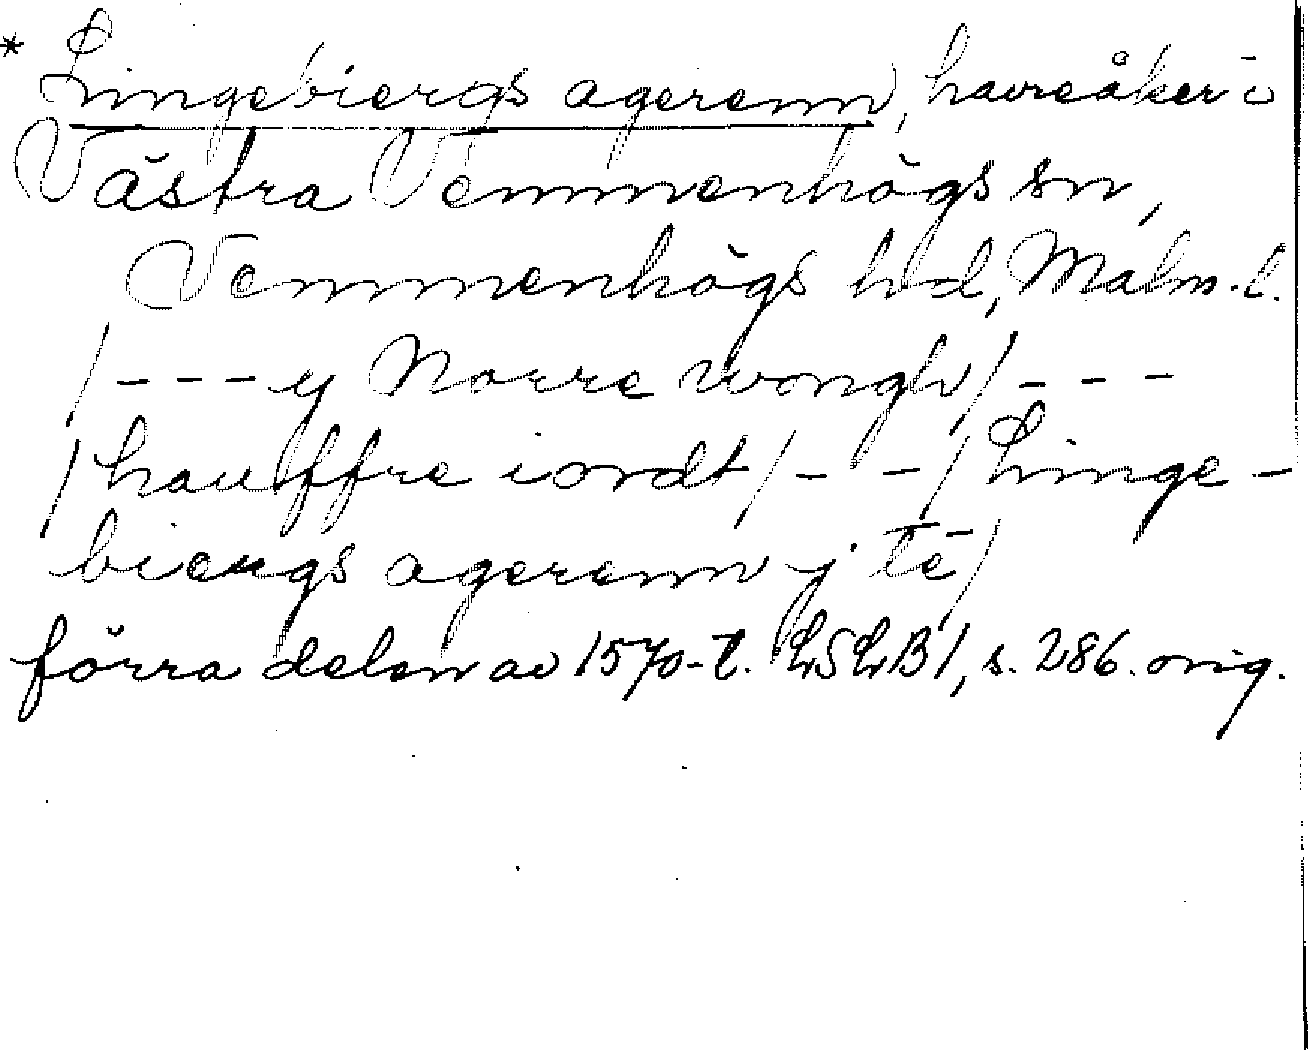 * Lingebiergs agerenn, havreåker i
Västra Vemmenhögs sn,
Vemmenhögs hd, Malm. l.
/ - - - y Norre wongh / - - -
/ hauffre iordt / - - / Linge-
biergs agerenn j tē /
förra delen av 1570-t. LSLB 1, s. 286. orig.